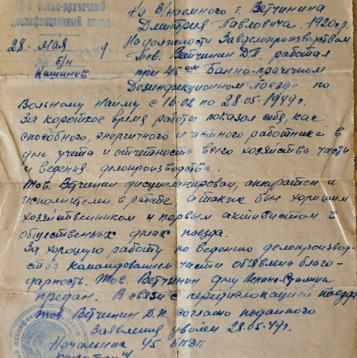 банно-прачечный
дезинфекционный поезд
28 мая
б/н
Кишинев
На В/наемного т. Ветчинина
Дмитрия Павловича, 1920 г.
На должности Зав делопроизводством
Тов. Ветчинин Д.П. работал
при 45 Банно-прачечном
Дезинфекционном поезде по
Вольному Найму с 16.02 по 28.05.1949 г.
За короткое время работы показал себя, как
способного, энергичного и честного работника в
учета и отчетности всего хозяйства части
и ведения делопроизводства.
Тов. Ветчинин дисциплинирован, аккуратен и
исполнителен в работе а также был хорошим
хозяйственником и первым активистом в
общественных делах поезда.
За хорошую работу по ведению делопроизвод-
ства командованием части объявлена благо-
дарность. Тов. Ветчинин делу Ленина-Сталина
предан. В связи с передислокацией поезда
тов. Ветчинин Д.П. согласно поданного
Заявления уволен 28.05.49 г.
Начальник 45 БПДП